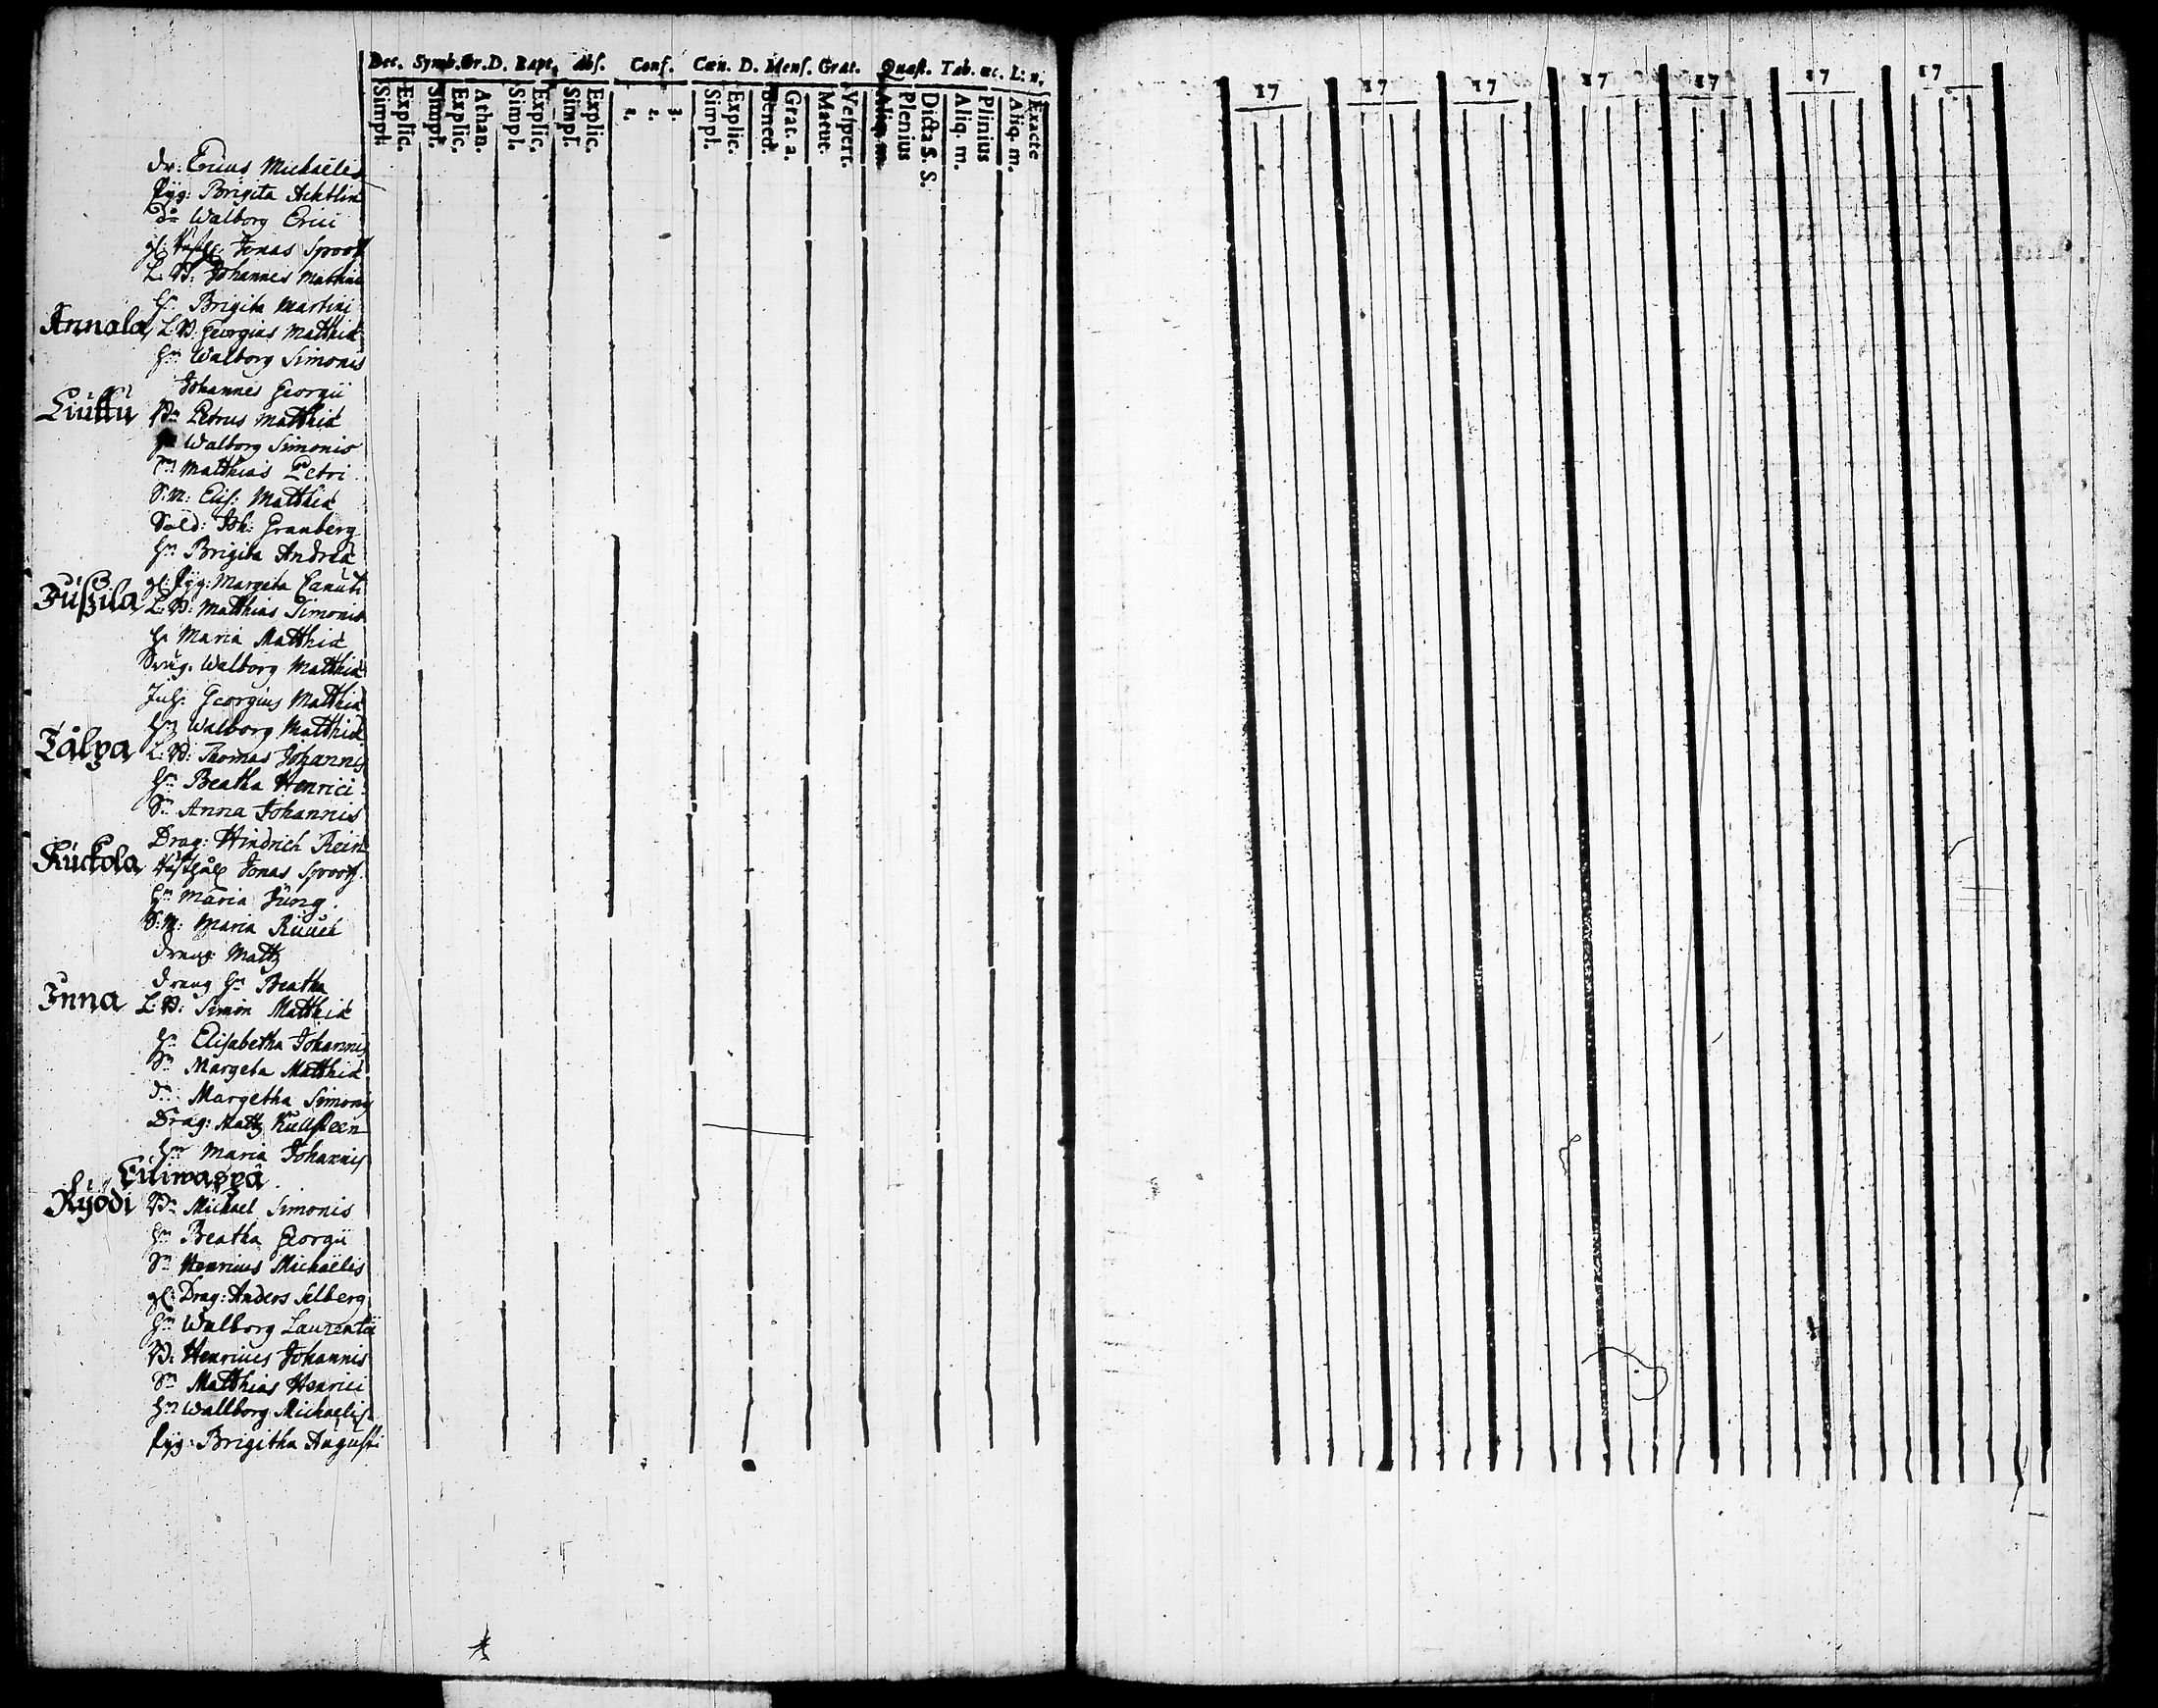 Dec. Symb. Or.D. Bapt. Abs. Conf. Cœn. D. Mens. Grat. Quæst. Tab. œc. L: n.
Simpl. Explic. Simpl. Explic. Athan. Simpl. Explic. Simpl. Explic. 1. 2. 3. Simpl. Explic. Bened. Grat. a. Matut. Vespert. Aliq. m. Plenius Dicta S. S. Aliq. m. Plinius Aliq. m. Exacte
17 17 17 17 17 17 17
dr: Ericus Michaëlis
Pyg: Brigita Achtlin
Dr Walborg Erici
gl: Jonas Sproof
L. B: Johannes Matthiæ
H: Brigita Martini
Annala L.B. Georgius Matthiæ
Hu Walborg Simonis
Johannes Georgii
Liuttu Bn Petrus Matthiæ
Hu Walborg Simonis
Sn Matthias Petri
S.M: Elis: Matthiæ
Sold: Joh: Granberg
Hu Brigita Andreæ
Jußila gl: Pyg: Margeta Canuti
L. B: Matthias Simonis
Hu Maria Matthiæ
Swåg. Walborg Matthiæ
Inh: Georgius Matthiæ
Hu Walborg Matthiæ
Tålpa L: B: Thomas Johannis
Hu Beatha Henrici
Sn Anna Johannis
Drag: Hindrich Rein
Kuckola Jonas Sproof
Hu Maria Jung
S:M: Maria
dräng Matts
dräng Hu Beatha
Inna L: B: Simon Matthiæ
Hu Elisabetha Johannis
Sn Margeta Matthiæ
Dr Margetha Simonis
Drag: Matts Kullsteen
Hu Maria Johannis
Cuiwaspä
Ryödi Bn Michael Simonis
Hu Beatha Georgii
Sn Henricus Michaëlis
gl: Drag: Anders Selberg
Hu Walborg Laurentii
B: Henricus Johannis
Sn Matthias Henrici
Hu Wallborg Michaelis
Pyg: Brigitha Augusti